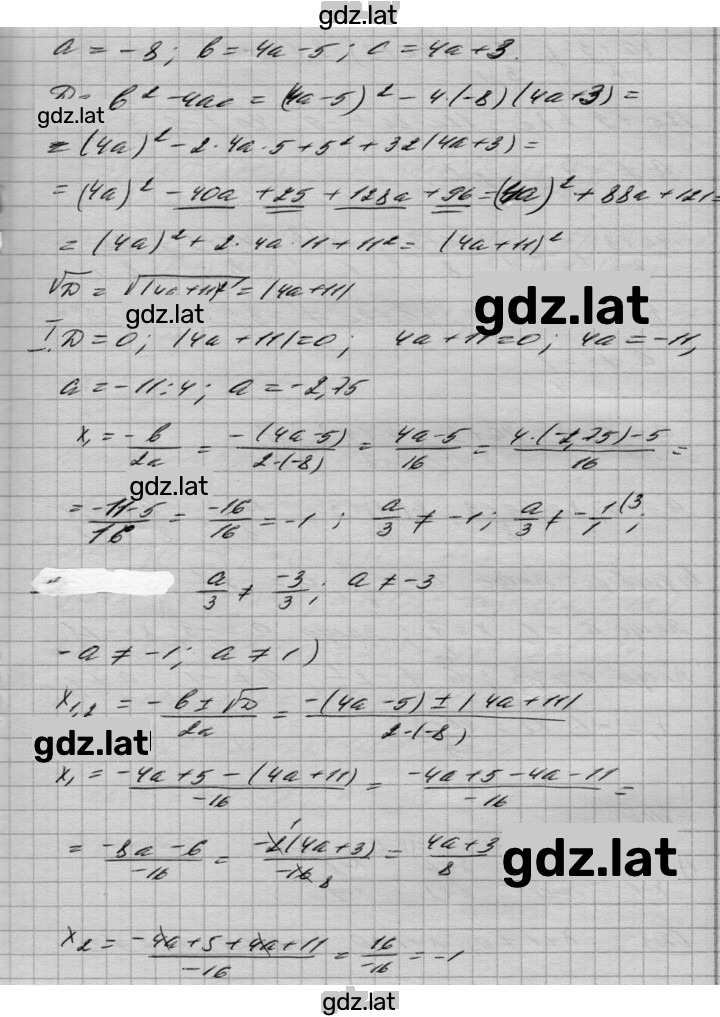 gdz.lat
a = -8; b = 4a - 5; c = 4a + 3.
D = b² - 4ac = (4a-5)² - 4·(-8)(4a+3) =
gdz.lat
= (4a)² - 2·4a·5 + 5² + 32(4a+3) =
= (4a)² - 40a + 25 + 128a + 96 = (4a)² + 88a + 121 =
= (4a)² + 2·4a·11 + 11² = (4a+11)²
√D = √(4a+11)² = |4a+11|
gdz.lat
gdz.lat
I. D = 0; |4a+11| = 0; 4a+11 = 0; 4a = -11,
a = -11:4; a = -2,75
x₁ = -b/2a = -(4a-5)/2·(-8) = 4a-5/16 = 4·(-2,75)-5/16 =
gdz.lat
= -11-5/16 = -16/16 = -1; a/3 ≠ -1; a/3 ≠ -1/1 (3;
a/3 ≠ -3/3; a ≠ -3
-a ≠ -1; a ≠ 1)
x₁,₂ = -b ± √D/2a = -(4a-5) ± |4a+11|/2·(-8)
gdz.lat
x₁ = -4a+5-(4a+11)/-16 = -4a+5-4a-11/-16 =
= -8a-6/-16 = -2¹(4a+3)/-16 8 = 4a+3/8
gdz.lat
x₂ = -4a+5+4a+11/-16 = 16/-16 = -1
gdz.lat